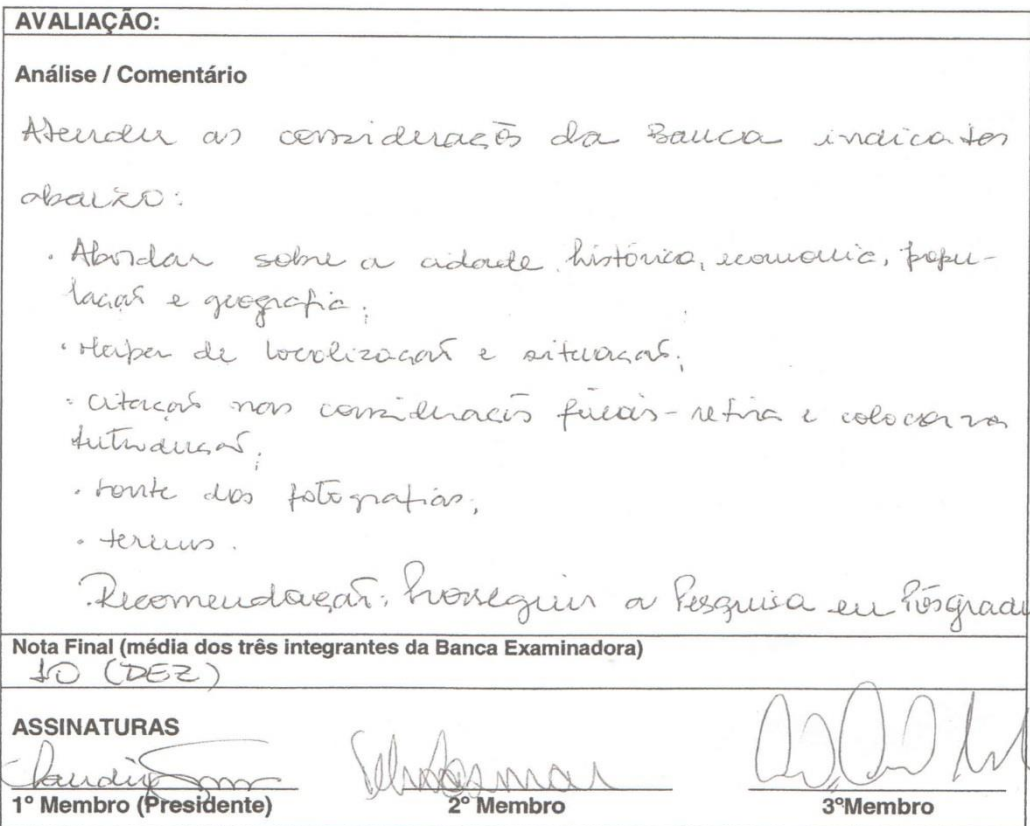 AVALIAÇÃO:
Análise / Comentário
Atender as considerações da Banca indicatos
abaixo:
· Abordar sobre a cidade histórico, economic, popu-
lação e geografia;
· Mapa de localização e situação;
· citação nas considerações finais - retira e colocar na
Introdução;
· Fonte das fotografias;
· termos.
Recomendação: Prosseguir a Pesquisa em Pósgradu
Nota Final (média dos três integrantes da Banca Examinadora)
10 (DEZ)
ASSINATURAS
1º Membro (Presidente) 2º Membro 3ºMembro